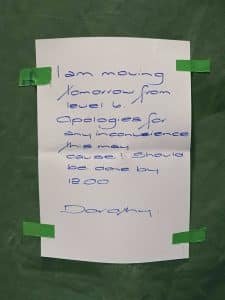 I am moving
tomorrow from
level 6.
Apologies for
any inconvenience
this may
cause! Should
be done by
1800
Dorothy.